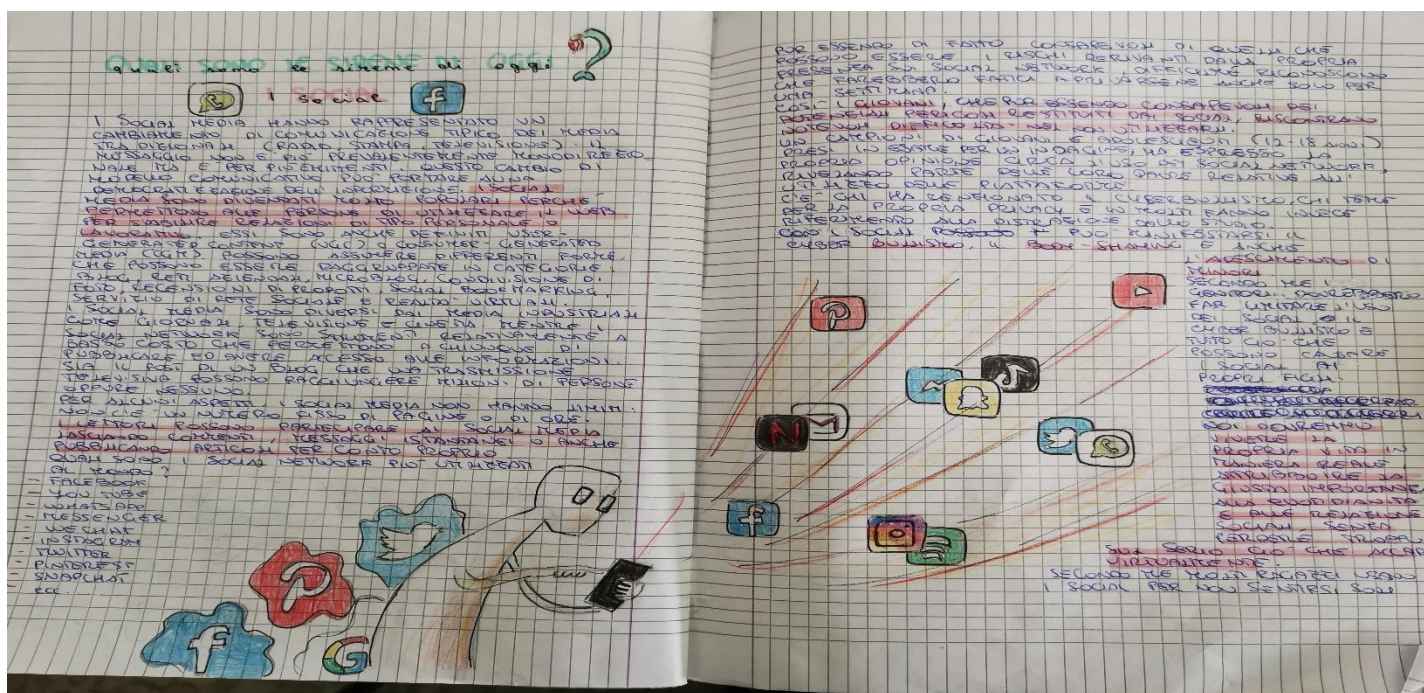 Quali sono le sirene di oggi?
I social
I SOCIAL MEDIA HANNO RAPPRESENTATO UN
CAMBIAMENTO DI COMUNICAZIONE TIPICO DEI MEDIA
TRADIZIONALI (RADIO, STAMPA, TELEVISIONE). IL
MESSAGGIO NON È PIÙ PREVALENTEMENTE MONODIREZIO
NALE MA È PER PIÙ UTENTI QUESTO CAMBIO DI
MODELLO COMUNICATIVO PUÒ PORTARE ALLA
DEMOCRATIZZAZIONE DELL'INFORMAZIONE. I SOCIAL
MEDIA SONO DIVENTATI MOLTO POPOLARI PERCHÉ
PERMETTONO ALLE PERSONE DI UTILIZZARE IL WEB
PER STABILIRE RELAZIONI DI TIPO PERSONALE O
LAVORATIVO. ESSI SONO ANCHE DEFINITI USER-
GENERATED CONTENT (UGC) O CONSUMER-GENERATED
MEDIA (CGM). POSSONO ASSUMERE DIFFERENTI FORME.
CHE POSSONO ESSERE RAGGRUPPATE IN CATEGORIE.
BLOG, RETI AZIENDALI, MICROBLOG, CONDIVISIONE DI
FOTO, RECENSIONI DI PRODOTTI, SOCIAL BOOKMARKING,
SERVIZIO DI RETE SOCIALE E REALTÀ VIRTUALI.
I SOCIAL MEDIA SONO DIVERSI DAI MEDIA INDUSTRIALI
COME GIORNALI, TELEVISIONE E CINEMA MENTRE I
SOCIAL NETWORK SONO STRUMENTI RELATIVAMENTE A
BASSO COSTO CHE PERMETTONO A CHIUNQUE DI
PUBBLICARE ED AVERE ACCESSO ALLE INFORMAZIONI.
SIA IL POST DI UN BLOG CHE UNA TRASMISSIONE
TELEVISIVA POSSONO RAGGIUNGERE MILIONI DI PERSONE
OPPURE NESSUNO.
PER ALCUNI ASPETTI I SOCIAL MEDIA NON HANNO LIMITI.
NON C'È UN NUMERO FISSO DI PAGINE O DI ORE.
I LETTORI POSSONO PARTECIPARE AI SOCIAL MEDIA
LASCIANDO COMMENTI, MESSAGGI ISTANTANEI O ANCHE
PUBBLICANDO ARTICOLI PER CONTO PROPRIO
QUALI SONO I SOCIAL NETWORK PIÙ UTILIZZATI
AL MONDO?
- FACEBOOK
- YOU TUBE
- WHATSAPP
- MESSENGER
- WECHAT
- INSTAGRAM
- TWITTER
- PINTEREST
- SNAPCHAT
ecc.
PUR ESSENDO DI FATTO CONSAPEVOLI DI QUELLI CHE
POSSONO ESSERE I RISCHI DERIVANTI DALLA PROPRIA
PRESENZA SUI SOCIAL NETWORK DIFFICILMENTE RICONOSCONO
CHE FAREBBERO FATICA A PRIVARSENE ANCHE SOLO PER
UNA SETTIMANA.
COSÌ I GIOVANI, CHE PUR ESSENDO CONSAPEVOLI DEI
POTENZIALI PERICOLI RESTITUITI DAI SOCIAL, RISCONTRANO
NOTEVOLI DIFFICOLTÀ NEL NON UTILIZZARLI.
UN CAMPIONE DI GIOVANI E ADOLESCENTI (12-18 ANNI)
PRESI IN ESAME PER UN'INDAGINE, HA ESPRESSO LA
PROPRIA OPINIONE CIRCA L'USO DEI SOCIAL NETWORK,
RIVELANDO PARTE DELLE LORO PAURE RELATIVE ALL'
UTILIZZO DELLE PIATTAFORME.
C'È CHI HA MENZIONATO IL CYBERBULLISMO, CHI TEME
PER LA PROPRIA PRIVACY E IN MOLTI FANNO INVECE
RIFERIMENTO ALLA DISTRAZIONE DALLO STUDIO.
CON I SOCIAL PUÒ MANIFESTARSI IL
CYBER BULLISMO, IL BODY-SHAMING E ANCHE
L'ADESCAMENTO DI
MINORI
SECONDO ME I
GENITORI DOVREBBERO
FAR LIMITARE L'USO
DEI SOCIAL E IL
CYBER BULLISMO E
TUTTO CIÒ CHE
POSSONO CAUSARE
I SOCIAL AI
PROPRI FIGLI.
NOI DOVREMMO
VIVERE LA
PROPRIA VITA IN
MANIERA REALE
ATTRIBUIRE LA
GIUSTA IMPORTANZA
ALLA QUOTIDIANITÀ
E ALLE RELAZIONI
SOCIALI SENZA
PRENDERE TROPPO
SUL SERIO CIÒ CHE ACCADE
VIRTUALMENTE.
SECONDO ME MOLTI RAGAZZI USANO
I SOCIAL PER NON SENTIRSI SOLI